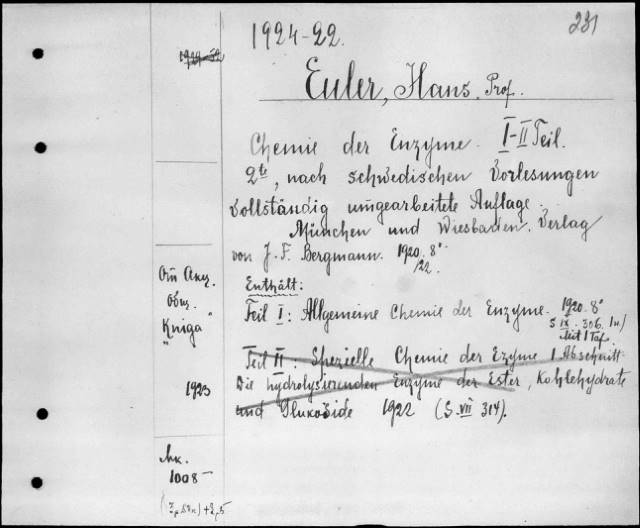 231
1924-22.
Euler, Hans. Prof.
Chemie der Enzyme. I-II Teil.
2te, nach schwedischen Vorlesungen
vollständig umgearbeitete Auflage.
München und Wiesbaden. Verlag
von J. F. Bergmann. 1920. 8°
/22.
Enthält:
Teil I: Allgemeine Chemie der Enzyme. 1920. 8°
S IX. 306. In)
Mit 1 Taf.
Teil II: Spezielle Chemie der Ezyme 1 Abschnitt
Die hydrolysierenden Enzyme der Ester, Kohlehydrate
und Glukoside 1922 (S. VII 314).
От Акц.
Общ.
"Книга"
1923
Ак.
1008 —